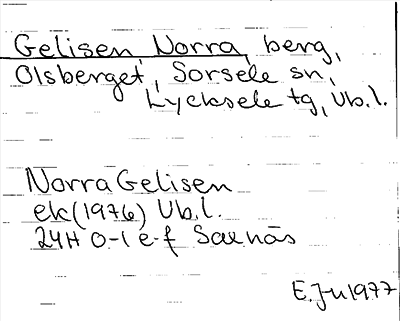 Gelisen, Norra, berg,
Olsberget, Sorsele sn,
Lycksele tg, Vb.l.
Norra Gelisen
ek (1976) Vb.l.
24H 0-1 e-f Saxnäs
E.Ju 1977